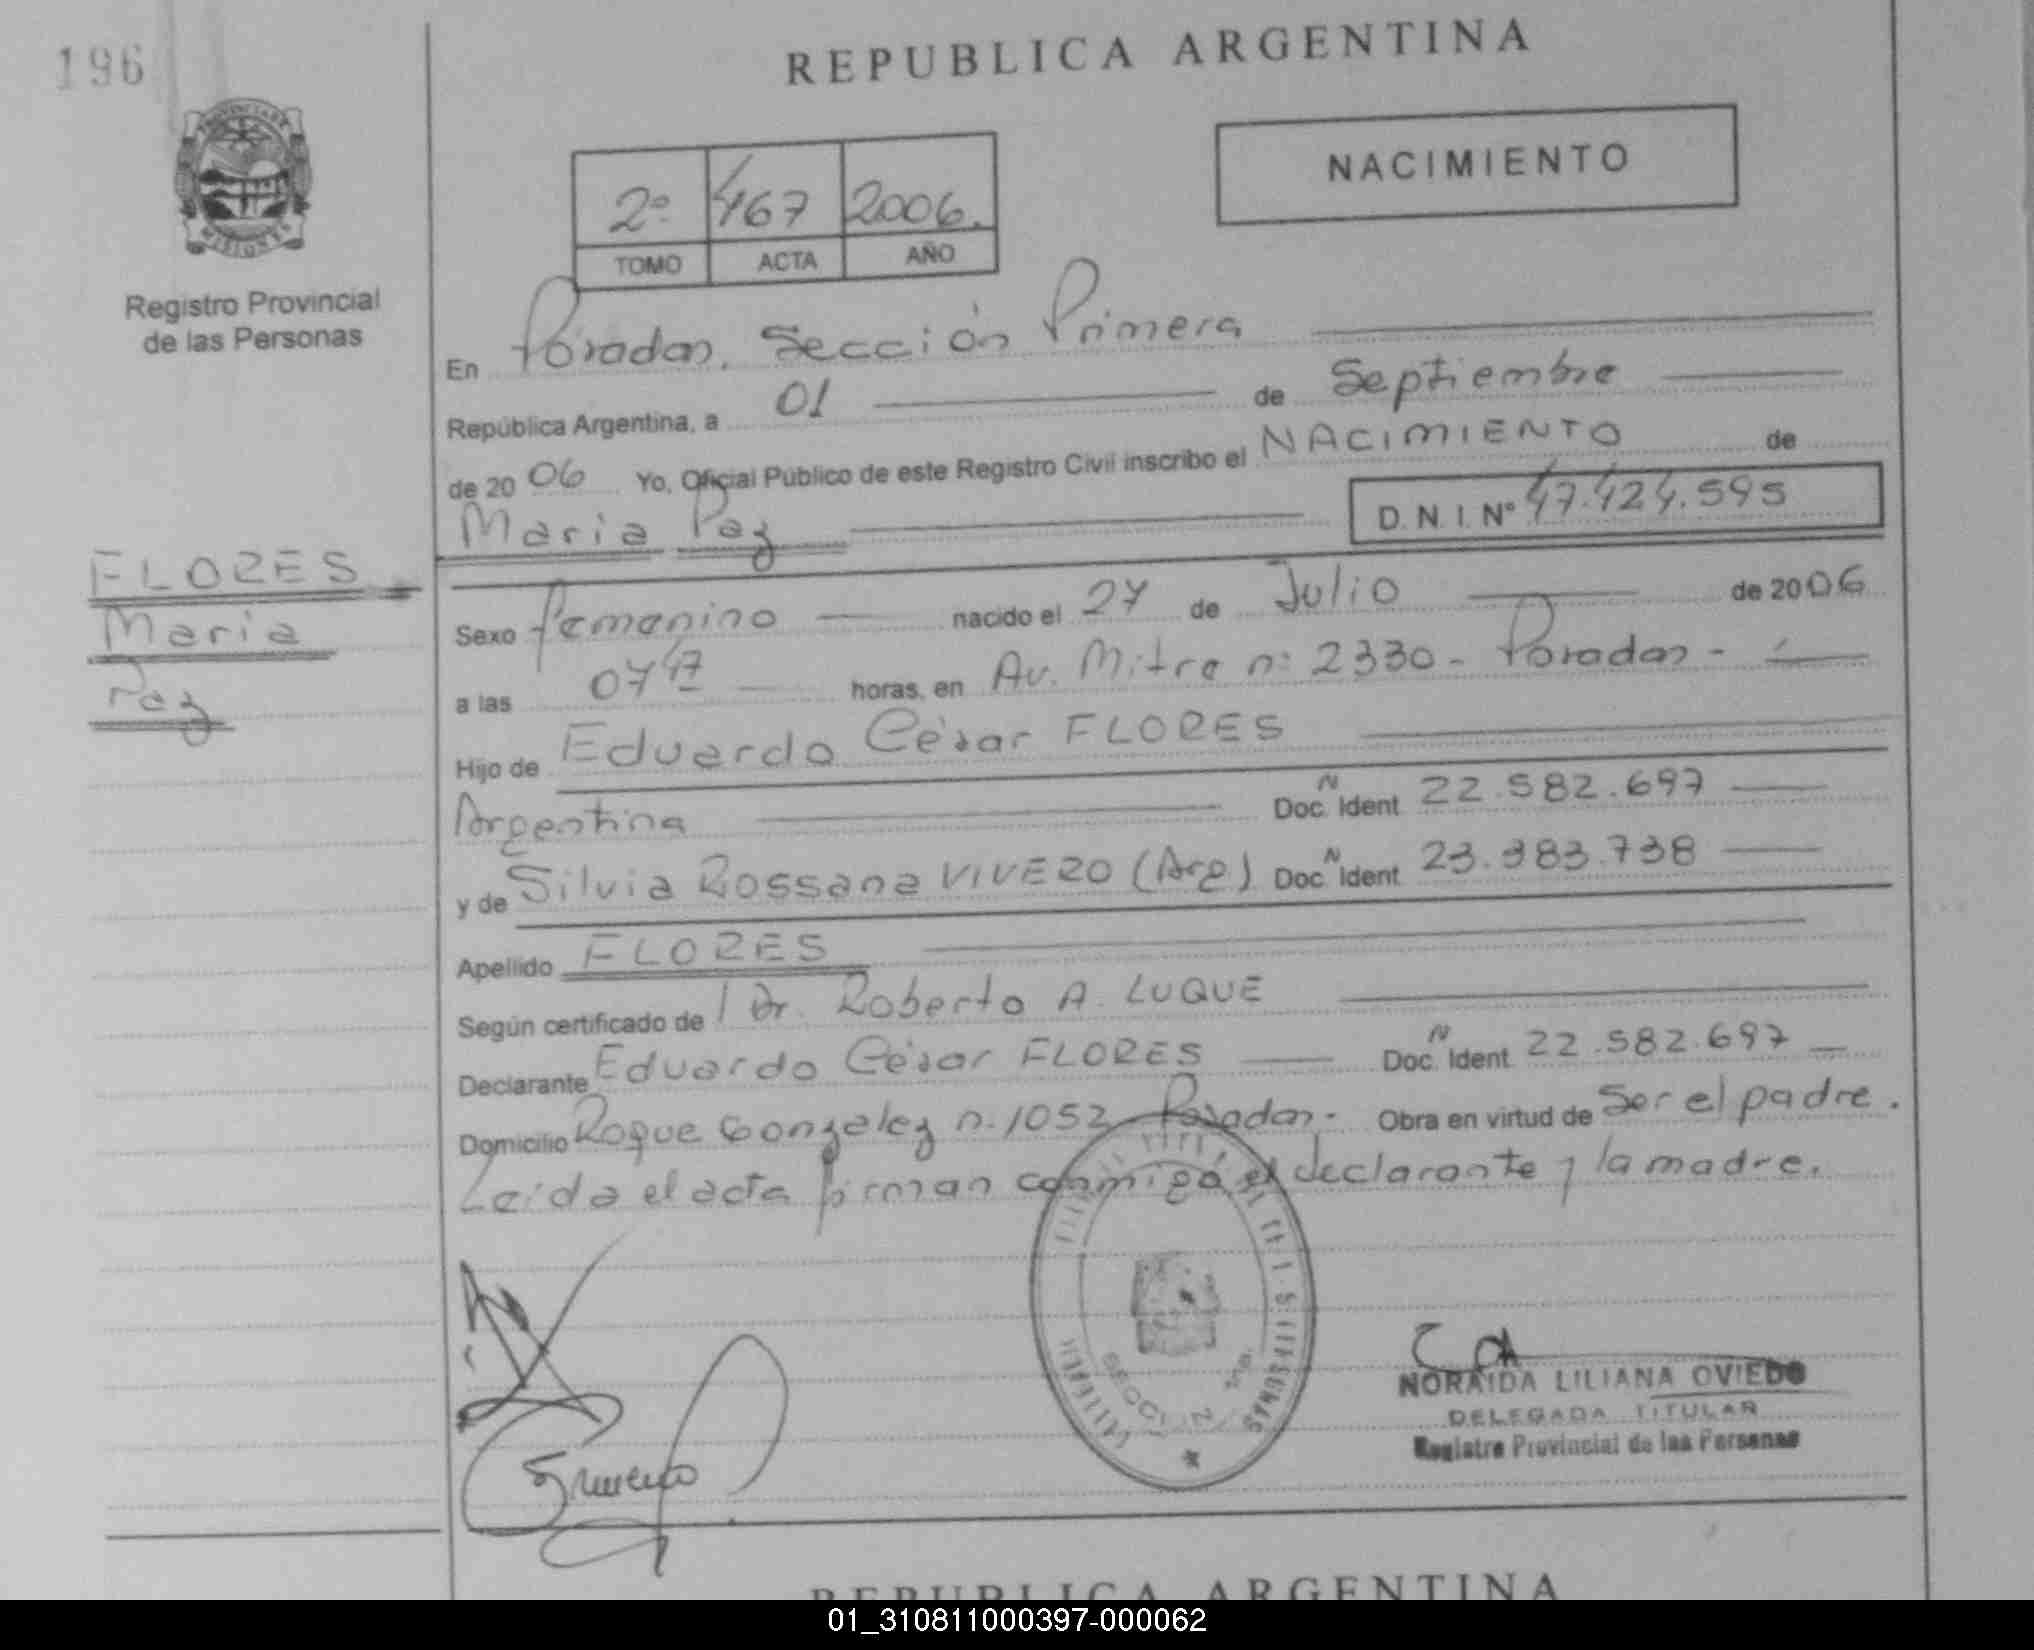 196
REPUBLICA ARGENTINA
NACIMIENTO
2º 467 2006.
TOMO ACTA AÑO
MISIONES
Registro Provincial
de las Personas
En Posadas, Sección Primera
República Argentina, a 01 de Septiembre
de 2006 Yo, Oficial Público de este Registro Civil inscribo el NACIMIENTO de
Maria Paz D. N. I. Nº 47.424.595
FLORES
Maria
Paz
Sexo femenino nacido el 27 de Julio de 2006
a las 07 47 horas, en Av. Mitre nº 2330 - Posadas -
Hijo de Eduardo César FLORES
Argentina Doc. N Ident. 22.582.697
y de Silvia Rossana VIVERO (Arg) Doc. N Ident. 23.383.738
Apellido FLORES
Según certificado de Dr. Roberto A. LUQUE
Declarante Eduardo César FLORES Doc. N Ident. 22.582.697
Domicilio Roque Gonzalez n. 1052 Posadas. Obra en virtud de Ser el padre.
Leida el acta firman conmigo el declarante y la madre.
NORAIDA LILIANA OVIEDO
DELEGADA TITULAR
Registro Provincial de las Personas
REPUBLICA ARGENTINA
01_310811000397-000062